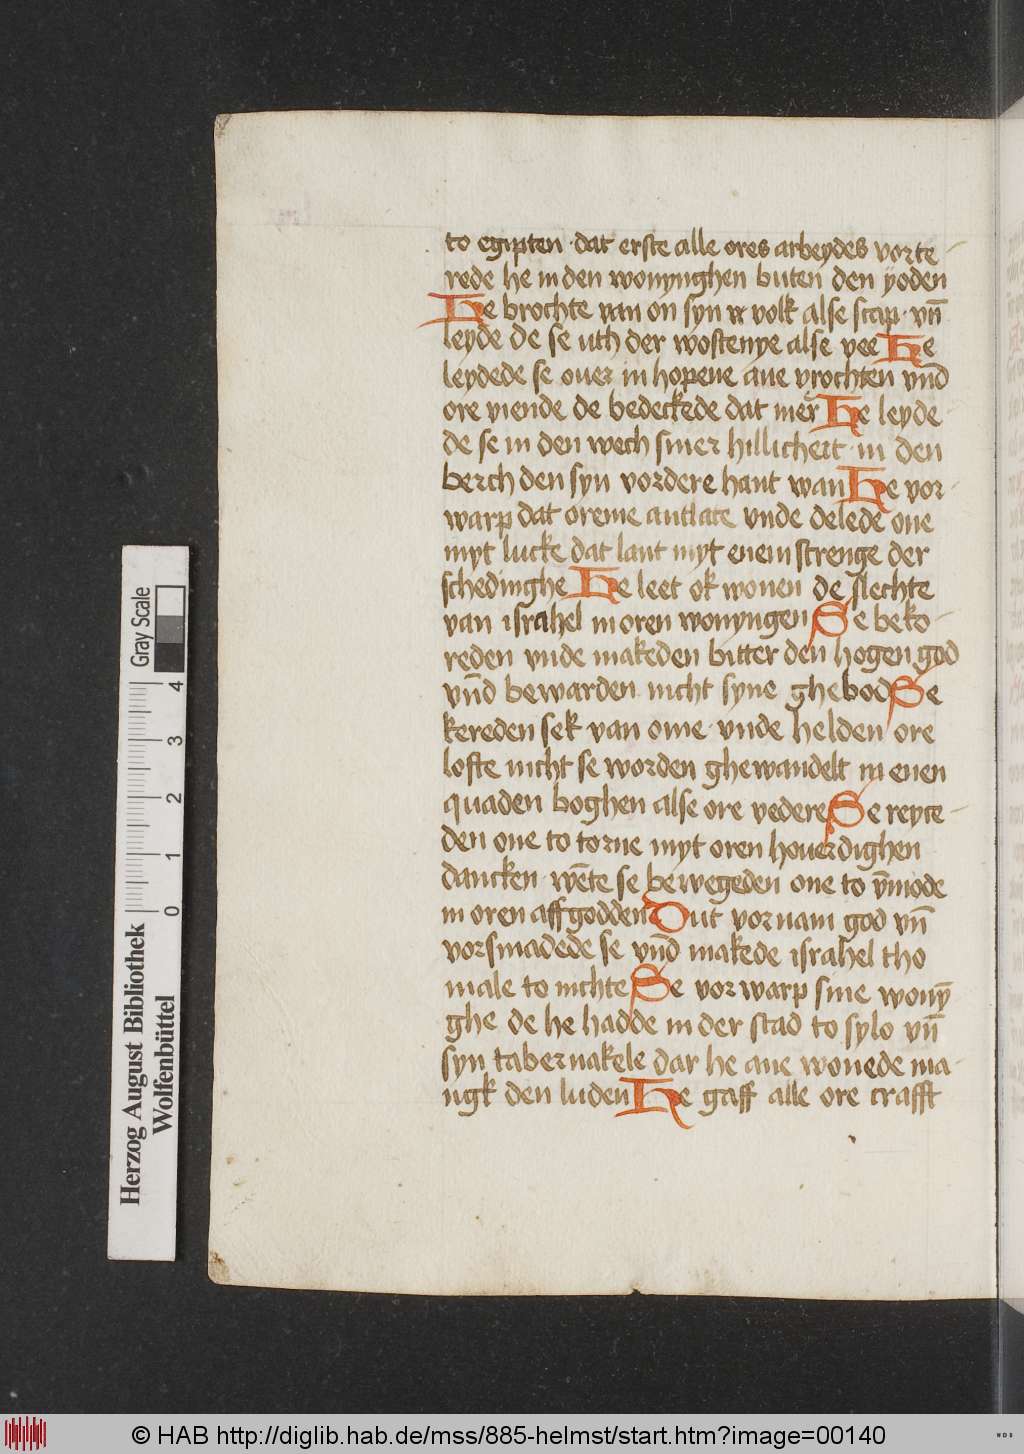 to egipten · dat erste alle ores arbeydes vorte-
rede he in den wonynghen buten den yoden
He brochte van on syn volk alse scap · vn̄
leyde de se uth der wostenye alse vee He
leydede se ouer in hopene ane vrochten vnd
ore viende de bedeckede dat mer He leyde-
de se in den wech siner hillicheit · in den
berch den syn vordere hant wan He vor-
warp dat oreme antlate vnde delede one
myt lucke dat lant myt enem strenge der
schedinghe He leet ok wonen de slechte
van israhel in oren wonyngen Se beko-
reden vnde makeden bitter den hogen god
vn̄d bewarden nicht syne ghebod Se
kereden sek van ome · vnde helden ore
lofte nicht se worden ghewandelt in enen
quaden boghen alse ore vedere Se reyte-
den one to torne myt oren houerdighen
dancken · wēte se bewegeden one to v̄mode
in oren affgodden Dut vornam god vn̄
vorsmadede se vn̄d makede israhel tho
male to nichte Se vorwarp sine wonȳ
ghe de he hadde in der stad to sylo vn̄
syn tabernakele dar he ane wonede ma-
ngk den luden He gaff alle ore crafft
Herzog August Bibliothek
Wolfenbüttel
0 1 2 3 4
Gray Scale
© HAB http://diglib.hab.de/mss/885-helmst/start.htm?image=00140